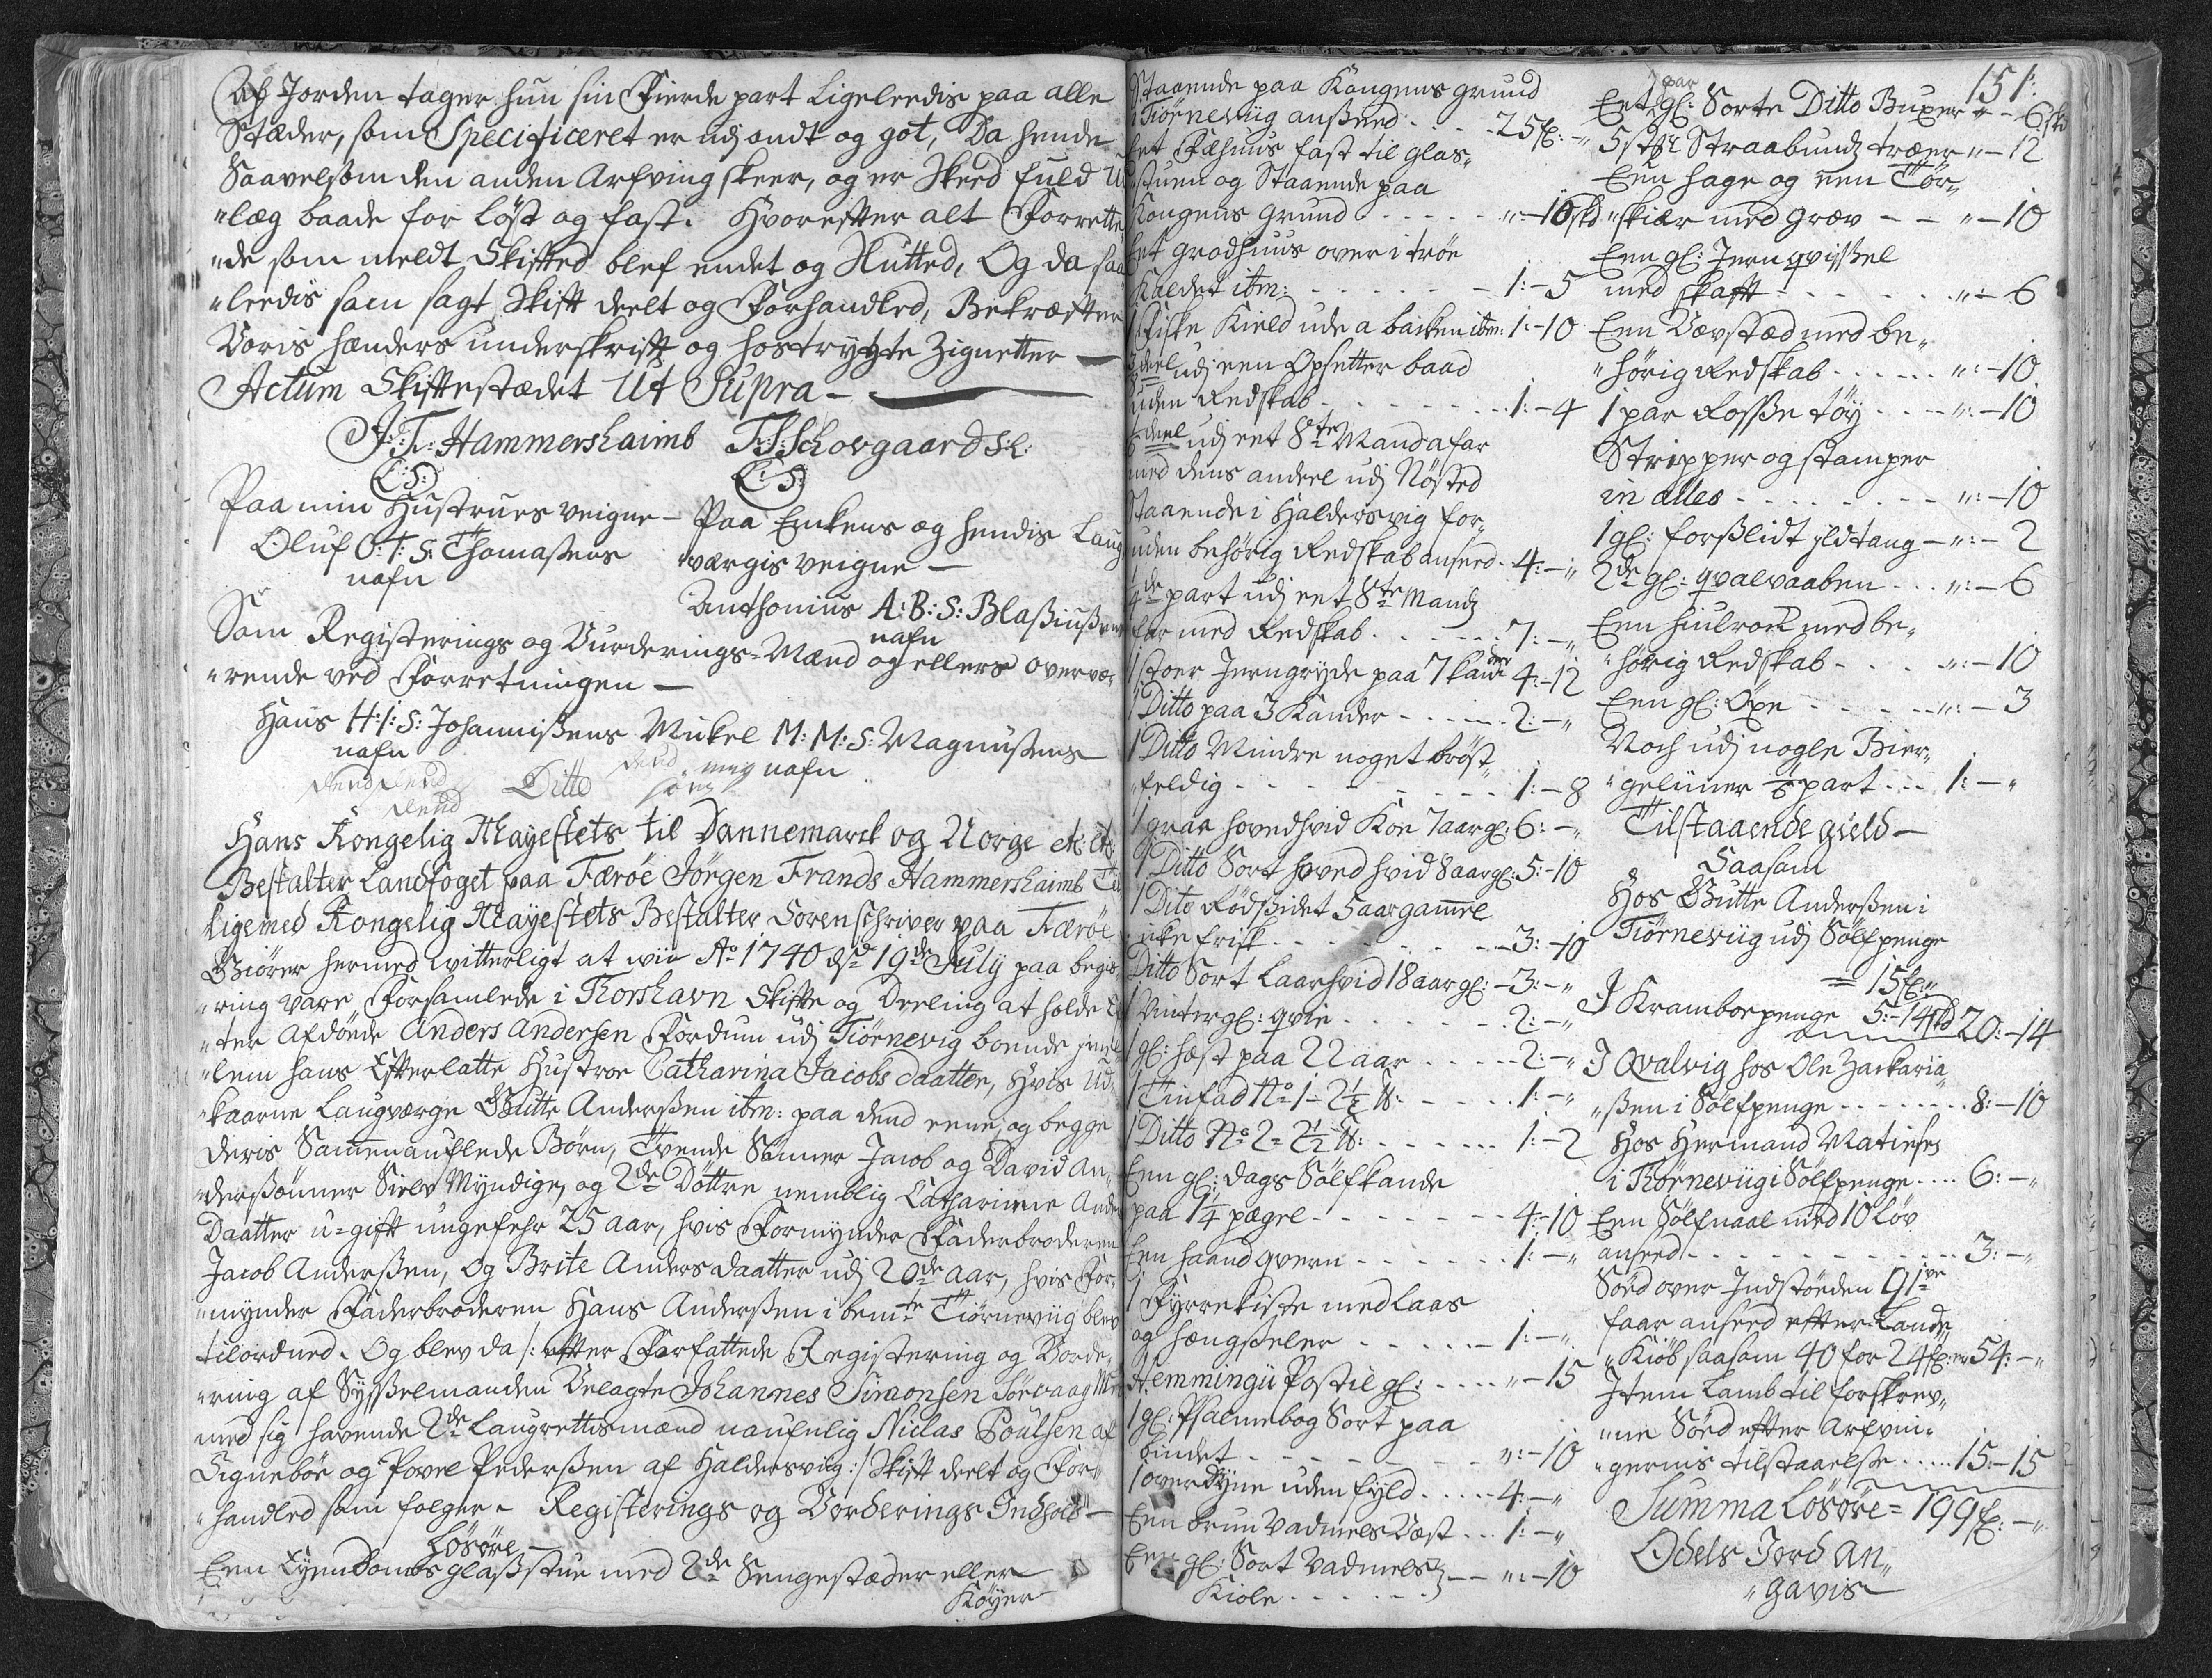 Af Jorden tager hun sin Fierde part Ligeleedis paa alle
Stæder, som Specificeret er udj ondt og got, Da hende
Saavelsom den anden Arfving skeer, og er Skeed fuld Ud
"læg baade for løst og fast. Hvorefter alt Forrette
"de som meldt Skifted blef endet og Slutted, Og da saa
"leedis som sagt Skift deelt og Forhandled, Bekræfter
Voris hænders underskrifft og hostrygte Zignetter —
Actum Skiftestædet Ut Supra —
J: F: Hammershaimb F: Schovgaard S:L:
L: S: L: S:
Paa min Hustrues veigne — Paa Enkens og hendis Laug
Oluf O: T: S: Thomasens værgis veigne —
nafn
Anthonius A: B: S: Blasiusens
nafn
Som Registerings og Vurderings-Mænd og ellers overvæ,
"rende ved Forretningen —
Hans H: I: S: Johannissens Mikel M: M: S: Magnussens
nafn nafn
Ditto
Hans Kongelig Mayestets til Dannemarck og Norge etc: etc:
Bestalter Landfoget paa Færöe Jörgen Frands Hammershaimb
Ligemed Kongelig Mayestets Bestalter Sorenschriver paa Færöe
Giörer hermed vitterligt at wii Ao 1740 d: 19de July paa begiæ
"ring vare Forsamlede i Thorshavn Skifte og Deeling at holde Ef
"ter Afdöde Anders Andersen Fordum udj Tiörnevig boende jmel
"lem hans Efterlatte Hustroe Catharina Jacobs daatter, hvis Ud„
"kaarne Laugværge Gutte Anderssen itm: paa dend eene, og begge
deris Sammenauflede Børn, Tvende Sönner Jacob og David An„
"derssönner Sielv Myndige, og 2de Döttre nemblig Catharine Anders
Daatter u-gift ungefehr 25 aar, hvis Formynder Faderbroderen
Jacob Anderssen, Og Brite Anders daatter udj 20de aar, hvis For„
"mynder Faderbroderen Hans Anderssen i bemte Tiörneviig blev
tilordned. Og blev da /: efter Forfattede Registering og Vorde„
"ring af Sysselmanden Velagte Johannes Simonsen Sörvaag
med sig havende 2de Laugrettismænd naufnlig Niclas Poulsen af
Eigneböe og Povel Pederssen af Haldersvig :/ Skift deelt og For„
"handled som folger — Registerings og Vorderings Indhold —
Lösöre —
Een Eyendoms glasstue med 2de Sengestæder eller
Köyer
Staaende paa Kongens grund
i Tiörneviig ansseed - - - - 25 fl: -„
Eet Fæhuus fast til glas„
"stuen og Staaende paa
Kongens grund - - - - - „: - 10 skd
Eet grodhuus over i tröe
Kaldet itm: - - - - - - 1: - 5
1 Fiske Kield ude a bakken itm: 1: - 10
deel udj een Opsetter baad
uden Redskab - - - - - - 1: - 4
deel udj eet 8te Manda far
med dens andeel udj Nösted
Staaende i Haldersvig for„
uden behörig Redskab ansseed - 4: - „
4de part udj eet 8te Mandz
far med Redskab - - - - - 7: - „
1 stoer Jerngryde paa 7 kander 4: - 12
1 Ditto paa 3 Kander - - - - 2: - „
1 Ditto Mindre noget bröst„
"feldig - - - - - - - - - 1: - 8
1 graae hovedhvid Koe 7 aar gl: 6: - „
1 Ditto Sort hoved hvid 8 aar gl: 5: - 10
1 Dito Rödssidet 5 aar gammel
icke frisk - - - - - - - - 3: - 10
Ditto Sort Laarhvid 18 aar gl: - 3: - „
1 Vinter gl: qvie - - - - - - 2: - „
1 gl: hæst paa 22 aar - - - - 2: - „
1 Tinfad No 1 - 2½ lb: - - - - 1: - „
1 Ditto No 2 - 2½ lb: - - - - - 1: - 2
Een gl: dags Sölfkande
paa 1¼ pægle - - - - - - - 4: - 10
Een haand qvern - - - - - - 1: - „
1 Fyrrekiste med laas
og hængsseler - - - - - 1: - „
Hemmingii Postil gl: - - - - „ - 15
1 gl: Psalmebog Sort paa
bindet - - - - - - - - - „: - 10
1 over Dyne uden fyld - - - - 4: - „
Een brun Vadmels Væst - - 1: - „
Een gl: Sort Vadmels
Kiole - - - - - - „: - 10
151:
par
Eet gl: Sorte Ditto Buxer „ - 6 skd
5 stkr Straabundz træer „ - 12
Een hage og een Tör„
"skiær med græv - - „ - 10
Een gl: Jern qvissel
med skafft - - - - - - „: - 6
Een Vævstæd med be„
"hörig Redskab - - - - - „: - 10
1 par Rosse töy - - - - „: - 10
Stripper og stamper
in alles - - - - - - - - „: - 10
1 gl: forsslidt jldtang - „: - 2
2de gl: qvalvaaben - - - „: - 6
Een hiulrock med be„
"hörig Redskab - - - - „: - 10
Een gl: Öxe - - - - - - „: - 3
Noch udj nogle Bier„
"geliner part - - - 1: - „
Tilstaaende gield —
Saasom
Hos Gutte Anderssen i
Tiörneviig udj Sölfpenge
= 15 fl: „
I Kramboepenge 5: - 14 skd 20: - 14
I Qvalvig hos Ole Zackaria„
"ssen i Sölfpenge - - - - - 8: - 10
Hos Hermand Matiesen
i Tiörneviig i Sölfpenge - - - 6: - „
Een Sölfnaal med 10 Löv
ansseed - - - - - - - - - - 3: - „
Söed over Indstöeden 91ve
faar ansseed efter Lands„
"Kiöb saasom 40 for 24 fl: er 54: - „
Item Lamb til forskrev„
"ne Söed efter Arfvin„
"gernis tilstaaelse - - - - 15: - 15
Summa Lösöre = 199 fl: - „
Odels Jord An„
"gavis